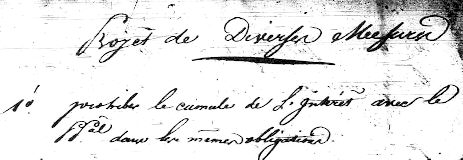 Projet de Diverses Mesures
1º prohiber le cumule de L'Interêt avec le
p.pal dans les mêmes obligations.